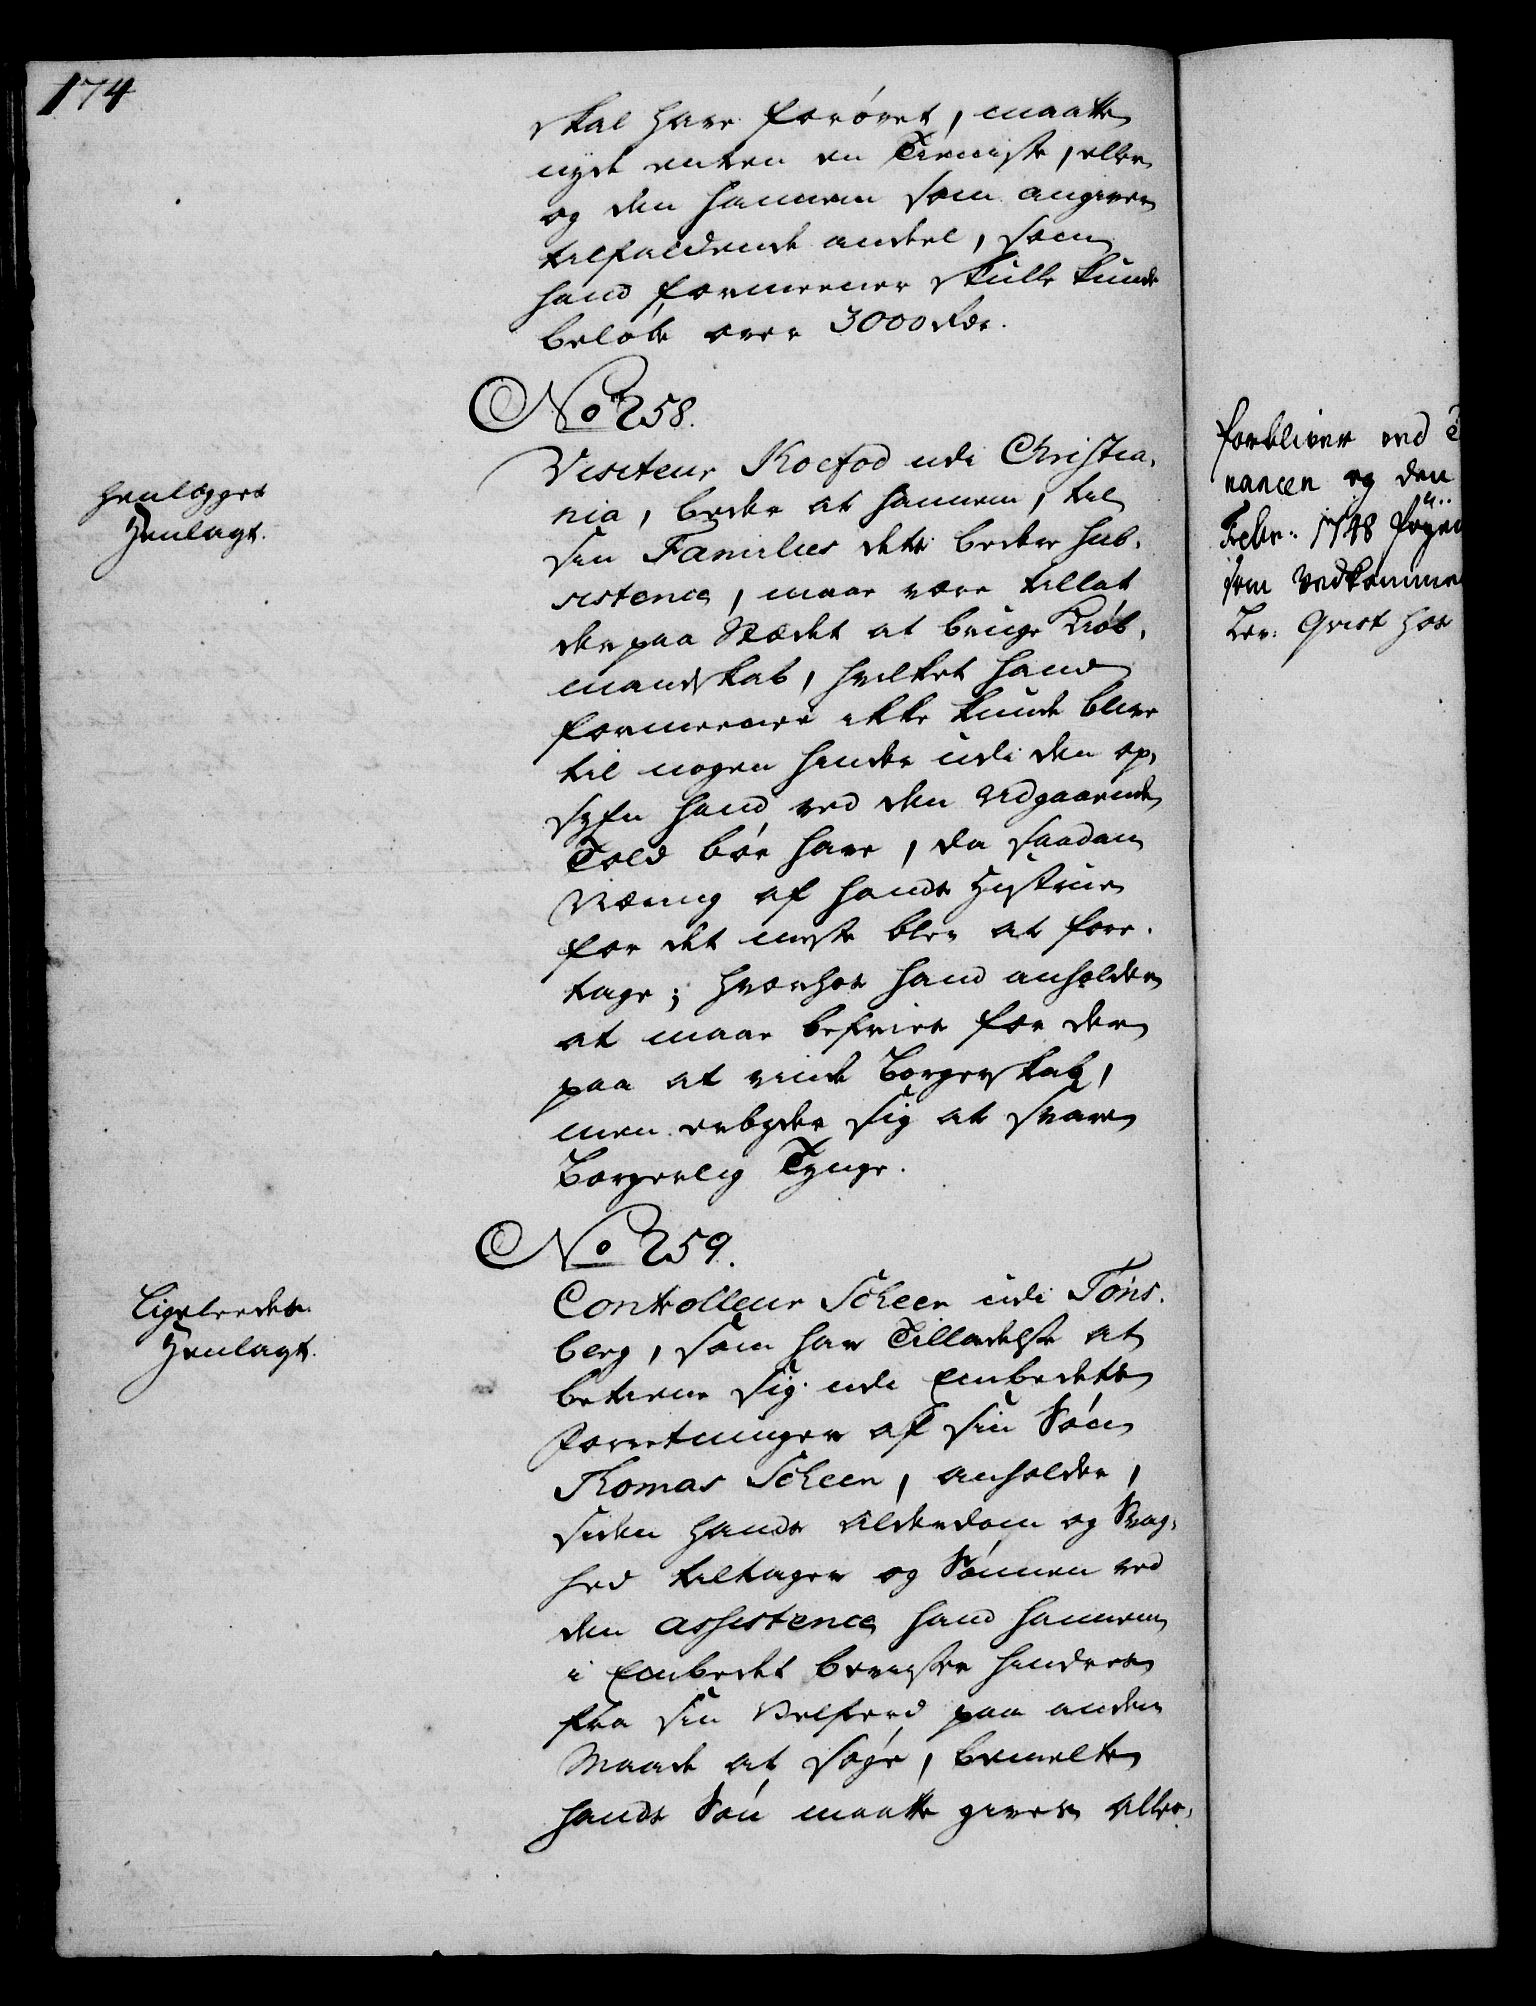 174
skal have forövet, maatte
nyde enten en Tieniste, eller
og den hannem som angiver
tilfaldende andeel, som
hand formeener skulle kunde
belöbe over 3000 Rdr.
No 258.
Visiteur Koefod udi Christia-
nia, beder at hannem, til
sin Families dets bedre sub-
sistence, maae være tillat
der paa Stædet at bruge Kiöb-
mandskab, hvilket hand
formeener ikke kunde blive
til nogen hinder udi den op-
syn hand ved den Udgaaende
Told bör have, da saadan
Næring af hands Hustrue
for det meste blev at fore-
tage; hvorhos hand anholder
at maae befries for der
paa at vinde Borgerskab,
men erbyder sig at svare
Borgerlig Tynge.
henlegges
Henlagt.
No 259.
Controlleur Scheen udi Töns-
berg, som har Tilladelse at
betiene sig udi Embedets
Forretninger af sin Sön
Thomas Scheen, anholder,
siden hands Alderdom og Svag-
hed tiltager og Sönnen ved
den assistence hand hannem
i Embedet beviser hindres
fra sin Velferd paa anden
Maade at söge, bemelte
hands Sön maatte gives Aller-
Ligeledes
Henlagt.
forbliver ved
nancen og den
Febr: 1748
som vedkomme
Qvist hos